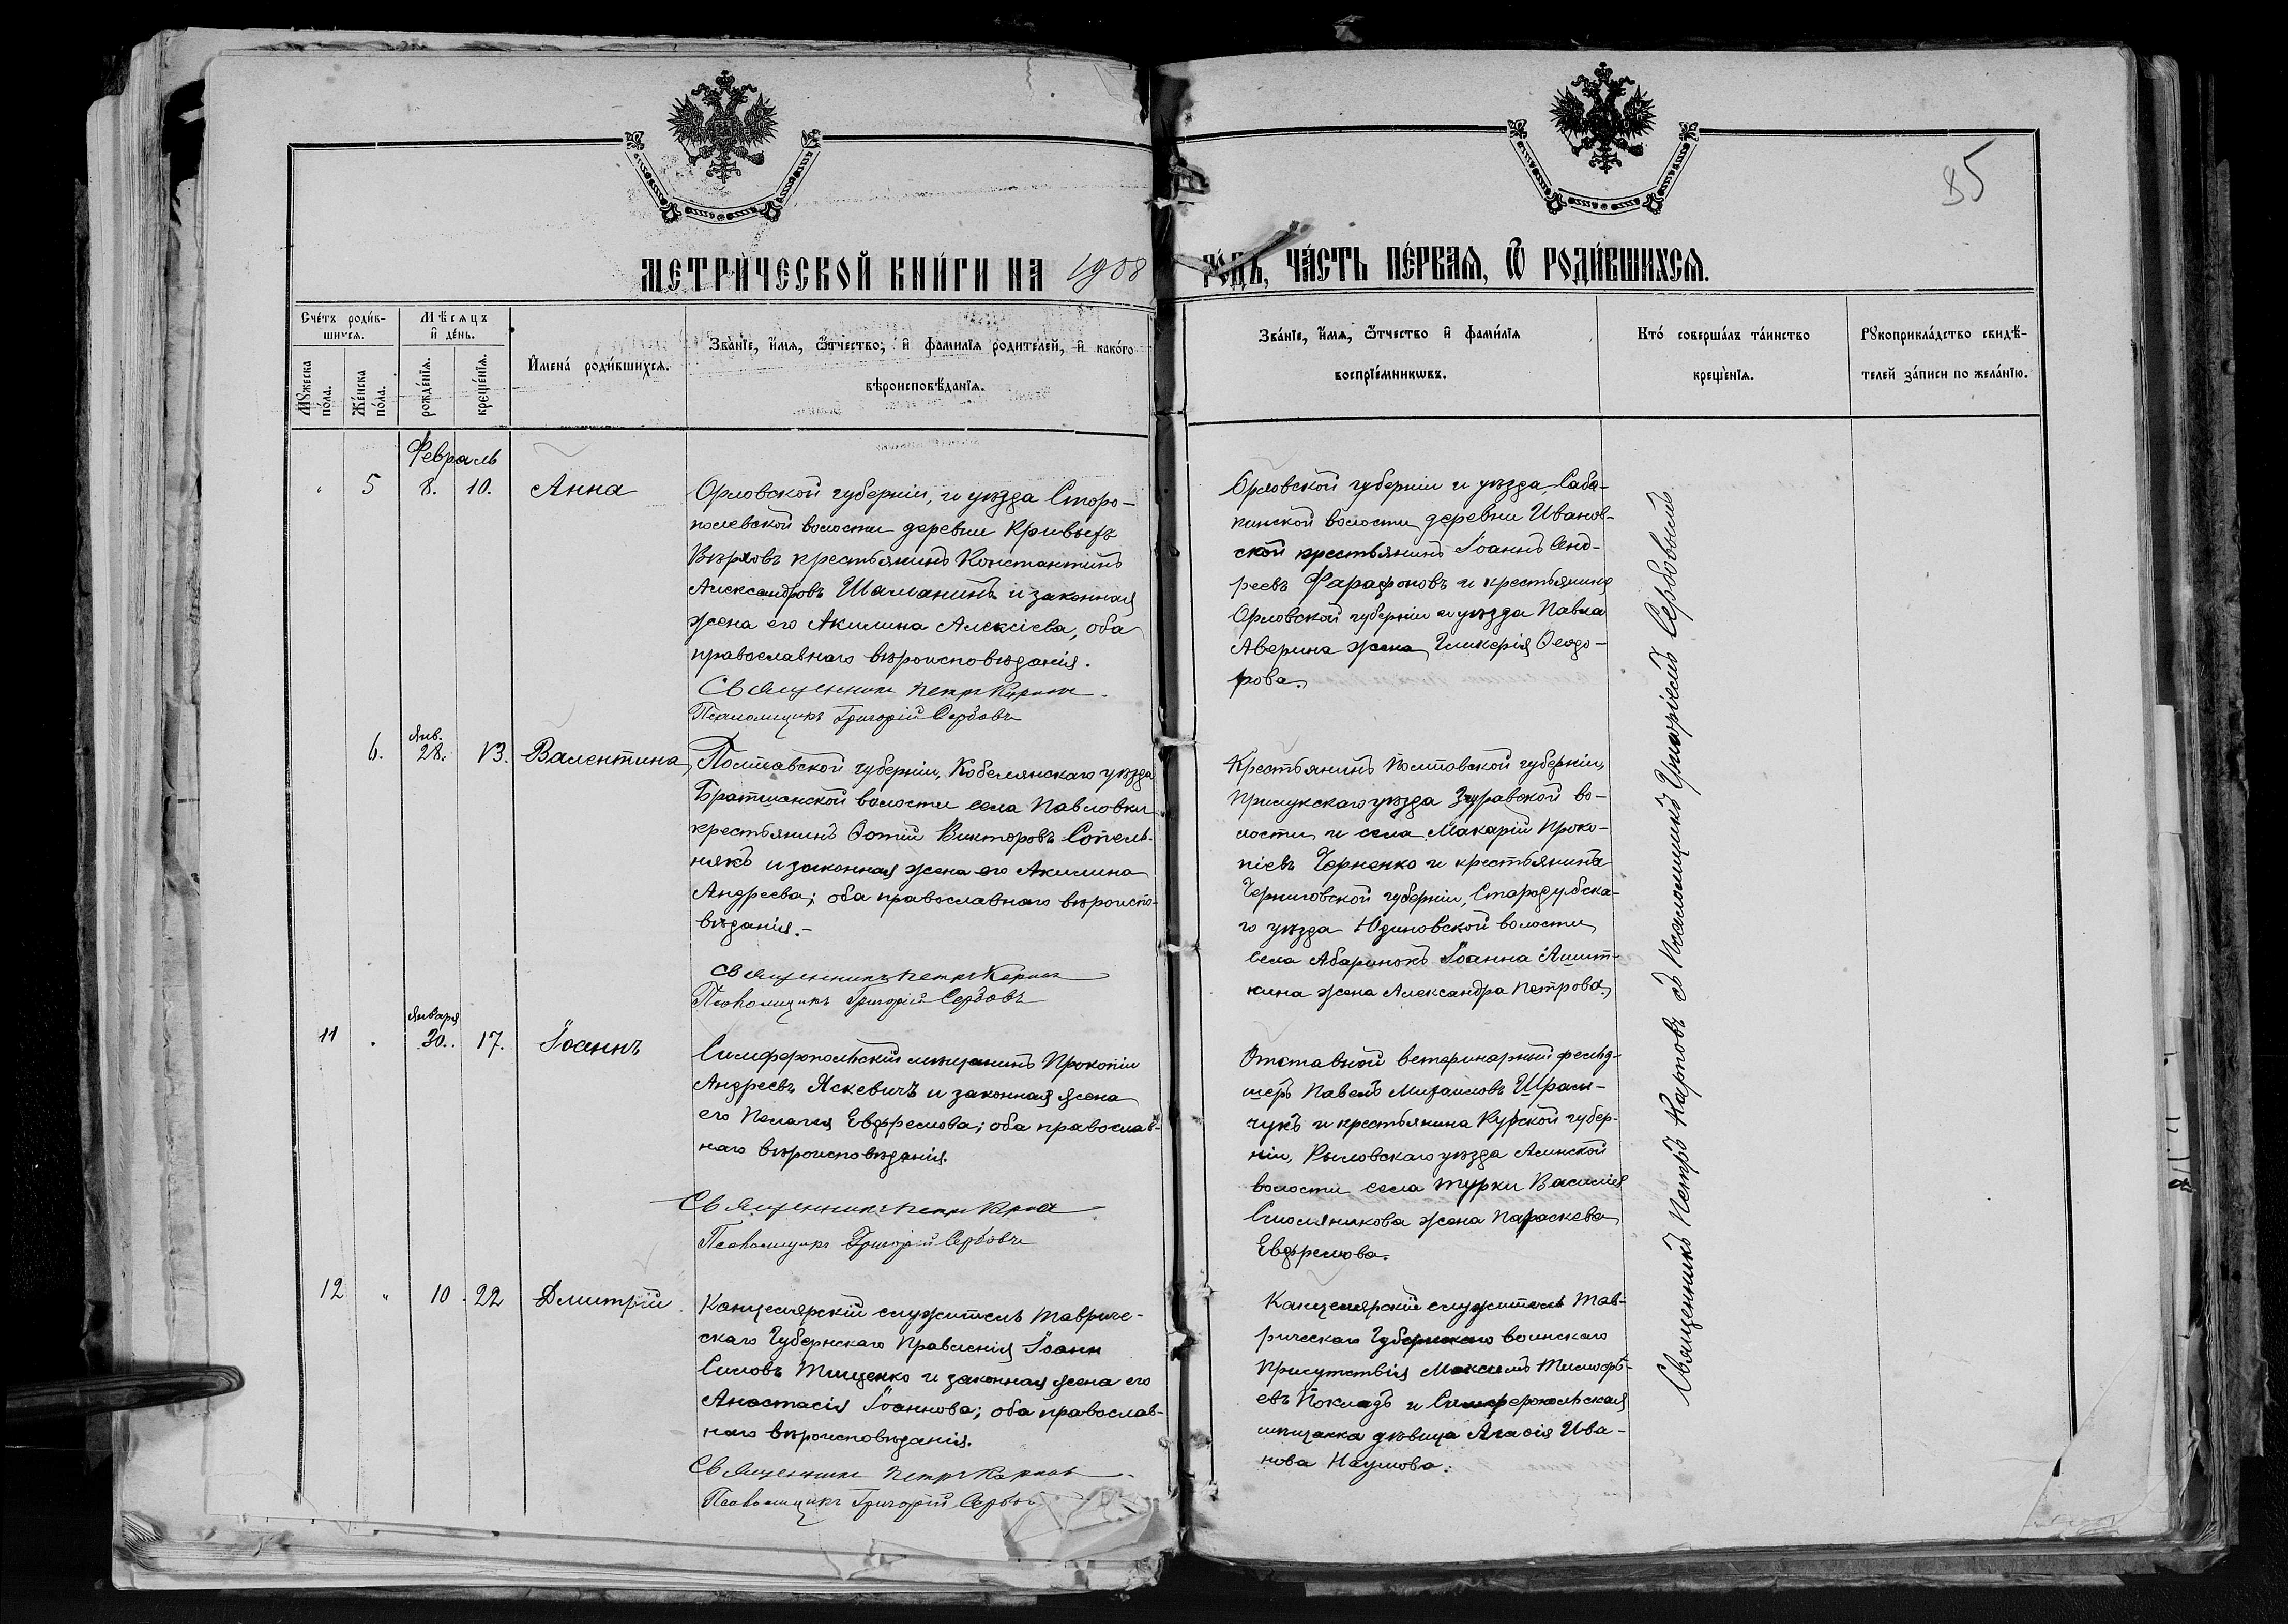 85
МЕТРИ́ЧЕСКОЙ КНИ́ГИ НА 1908 ГО́ДЪ, ЧА́СТЬ ПЕ́РВАѦ, Ѿ РОДИ́ВШИХСѦ.
Сче́тъ роди́в-
шихся.
Мѣ́сяцъ
и҆ де́нь.
Мꙋ́жеска по́ла.
Же́нска по́ла.
рожде́нїѧ.
креще́нїѧ.
И҆мена̀ роди́вшихсѧ.
Зва́нїе, и҆́мѧ, ѻ҆́тчество, и҆ фами́лїѧ роди́телей, и҆ како́гѡ
вѣроисповѣ́данїѧ.
Зва́нїе, и҆́мѧ, ѻ҆́тчество и҆ фами́лїѧ
воспрїе́мникѡвъ.
Кто́ соверша́лъ та́инство
креще́нїѧ.
Рꙋкоприкла́дство свидѣ́-
телей за́писи по жела́нїю.
Февраль
5 8. 10. Анна
Орловской губерніи, и уѣзда Старо-
полевской волости деревни Кривыхъ
Верховъ крестьянинъ Константинъ
Александровъ Шаманинъ и законная
жена его Акилина Алексіева, оба
православнаго вѣроисповѣданія.
Священникъ Петръ Карповъ
Псаломщикъ Григорій Сербовъ
Орловской губерніи и уѣзда, Саба-
кинской волости, деревни Иванов-
ской крестьянинъ Іоаннъ Анд-
реевъ Фарафоновъ и крестьянина
Орловской губерніи и уѣзда Павла
Аверина жена Гликерія Ѳеодо-
рова.
6. Янв. 28. 13. Валентина
Полтавской губерніи, Кобелянскаго уѣзда
Братшанской волости села Павловки
крестьянинъ Фотій Викторовъ Сопель-
някъ и законная жена его Акилина
Андреева; оба православнаго вѣроиспо-
вѣданія.-
Священникъ Петръ Карповъ
Псаломщикъ Григорій Сербовъ
Крестьянинъ Полтавской губерніи,
Прилукскаго уѣзда Журавской во-
лости и села Макарій Проко-
піевъ Черненко и крестьянина
Черниговской губерніи, Стародубска-
го уѣзда Юдиновской волости
села Абаринокъ Іоанна
жена Александра Петрова,
11 Января 30. 17. Іоаннъ
Симферопольскій мѣщанинъ Прокопій
Андреевъ Яскевичъ и законная жена
его Пелагія Евфремова; оба православ-
наго вѣроисповѣданія.
Священникъ Петръ Карповъ
Псаломщикъ Григорій Сербовъ
Отставной ветеринарный фельд-
шеръ Павелъ Михаиловъ Шрам-
чукъ и крестьянина Курской губер-
ніи, Рыльскаго уѣзда
волости села Турки Василія
жена Параскева
Евфремова.
12 „ 10 22 Дмитрій
Канцелярскій служитель Тавриче-
скаго Губернскаго Правленія Іоаннъ
Силовъ Тищенко и законная жена его
Анастасія Іоаннова; оба православ-
наго вѣроисповѣданія.
Священникъ Петръ Карповъ
Псаломщикъ Григорій Сербовъ
Канцелярскій служитель Тав-
рическаго Губернскаго воинскаго
Присутствія Максимъ Тимофѣ-
евъ Покладъ и Симферопольская
мѣщанка дѣвица Агафія Ива-
нова Наумова.
Священникъ Петръ Карповъ съ Псаломщикомъ Григоріемъ Сербовымъ